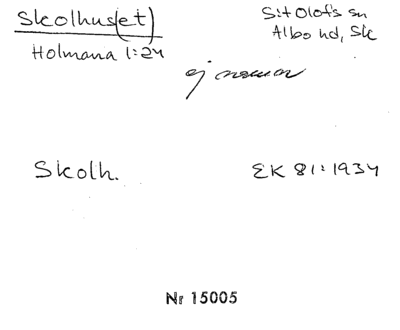 Skolhus(et)
S:t Olofs sn
Albo hd, Sk
Holmana 1:24
ej
Skolh.
EK 81:1934
Nr 15005